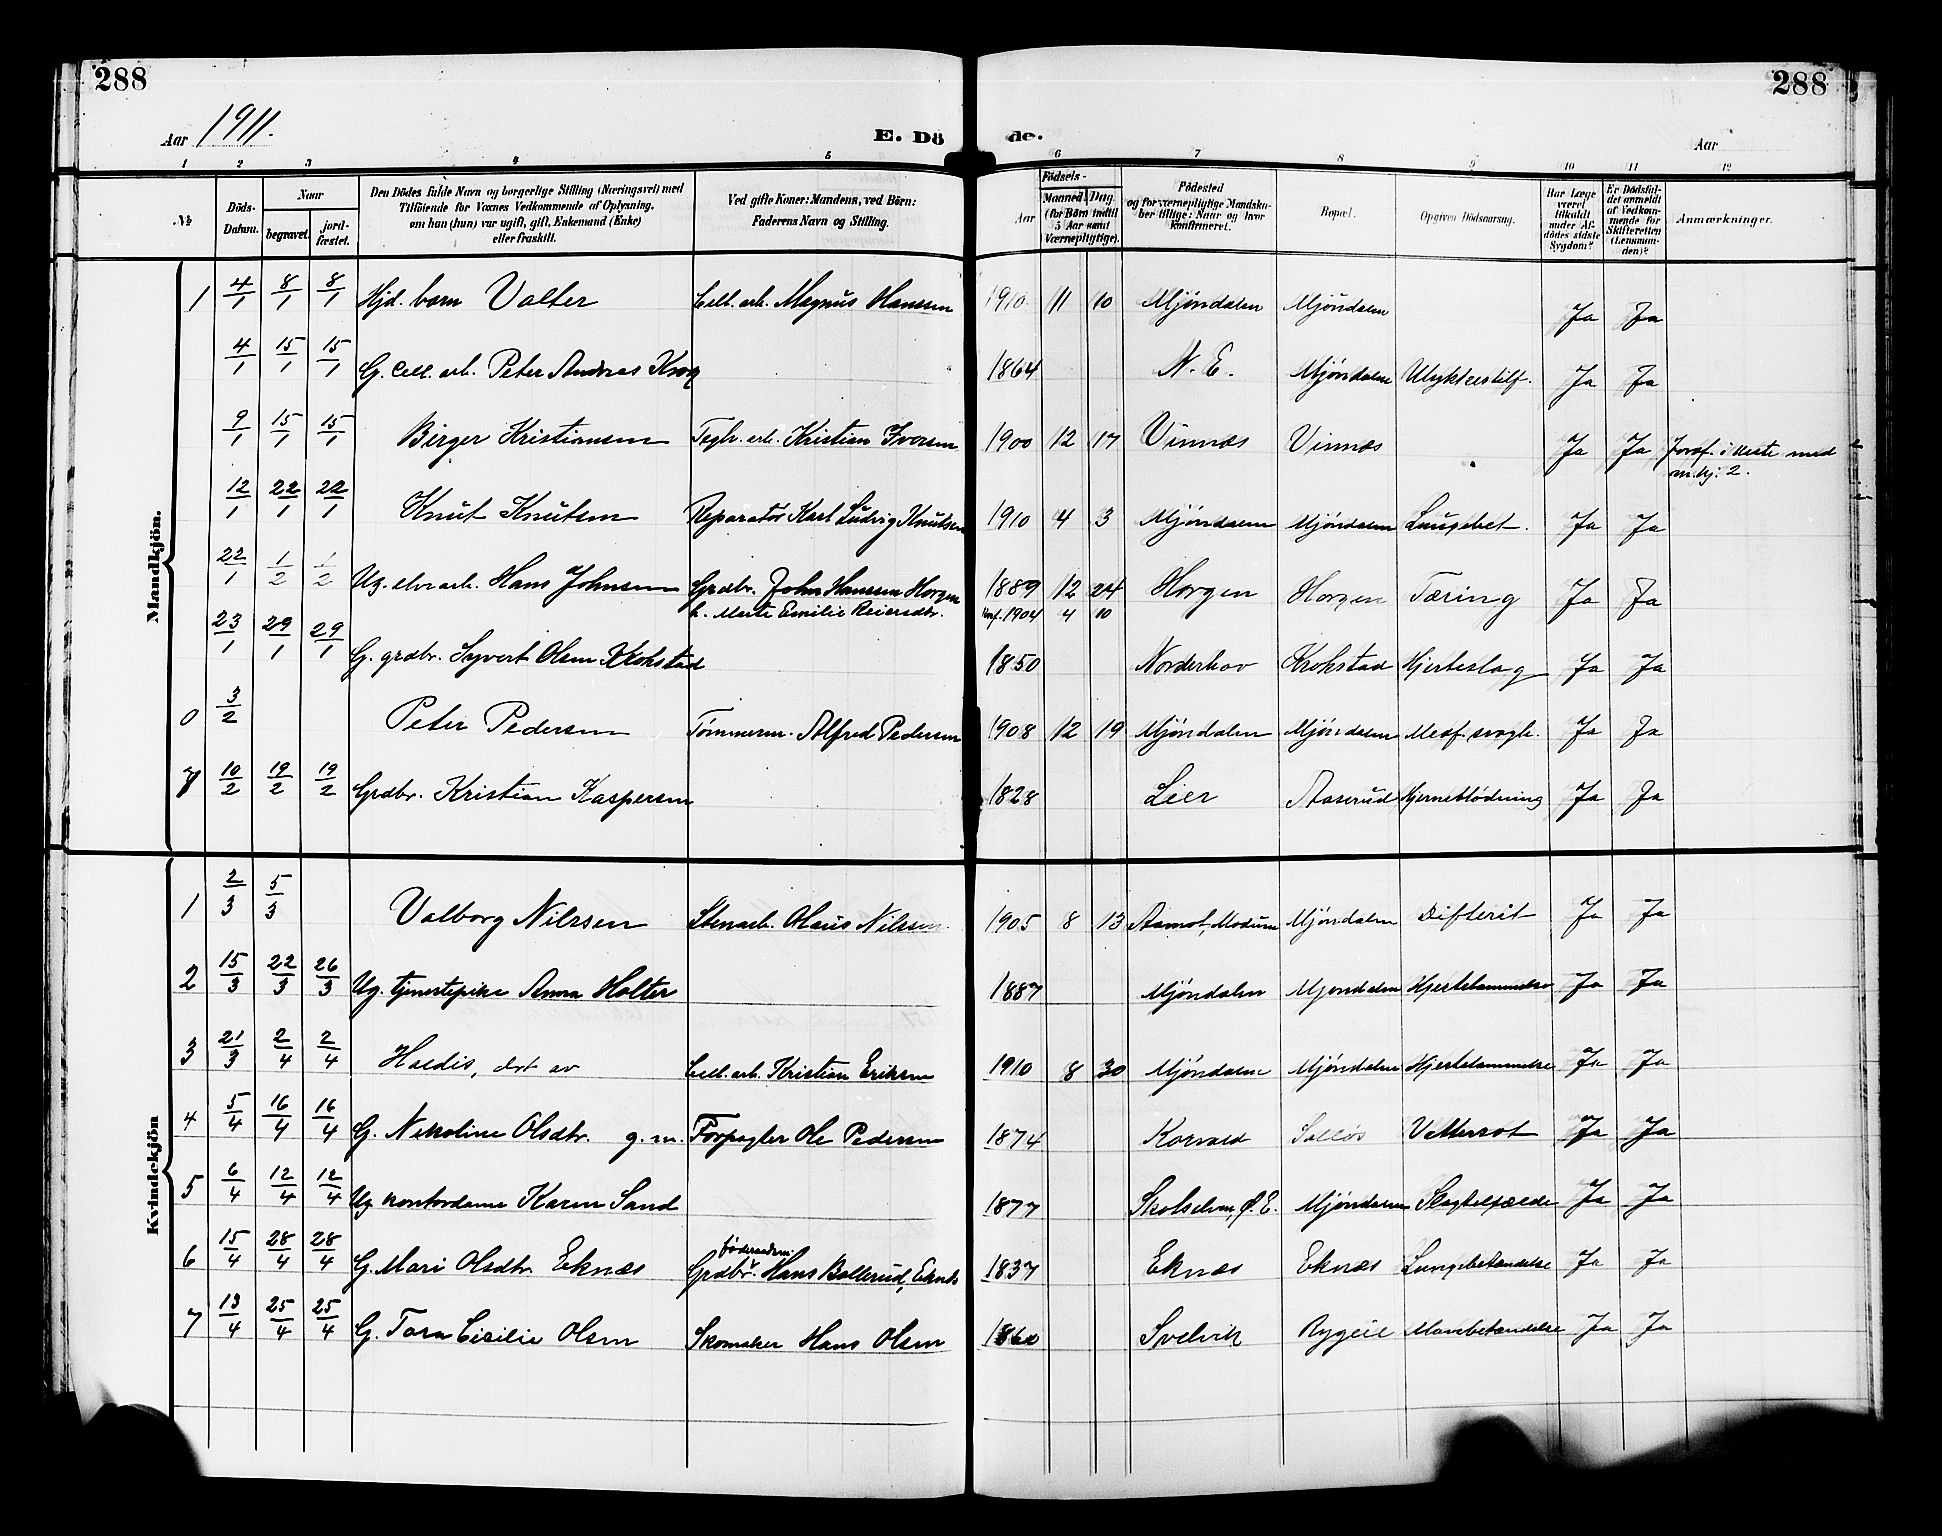 288
288
Aar 1911.
E. Dö de.
Aar
1 2 3 4 5 6 7 8 9 10 11 12
№
Döds-Datum.
Naar
begravet.
jord-fæstet.
Den Dödes fulde Navn og borgerlige Stilling (Næringsvei) med
Tilföiende for Voxnes Vedkommende af Oplysning,
om han (hun) var ugift, gift, Enkemand (Enke)
eller fraskilt.
Ved gifte Koner: Mandens, ved Börn:
Faderens Navn og Stilling.
Födsels-
Aar
Maaned. Dag
(for Börn indtil
5 Aar samt
Værnepligtige).
Födested
og for værnepligtige Mandska-
ber tillige: Naar og hvor
konfirmeret.
Bopæl.
Opgiven Dödsaarsag.
Har Læge
været
tilkaldt
under Af-
dödes sidste
Sygdom?
Er Dödsfal-
det anmeldt
af Vedkom-
mende for
Skifteretten
(Lensman-
den)?
Anmærkninger.
Mandkjön.
1 4/1 8/1 8/1 Hjd. barn Valter Cell. arb. Magnus Hanssen 1910 11 10 Mjöndalen Mjöndalen Ja Ja
4/1 15/1 15/1 G. Cell. arb. Peter Andreas Krog 1864 N. E. Mjöndalen Ulykkestilf. Ja Ja
9/1 15/1 15/1 Birger Kristiansen Teglv. arb. Kristian Iversen 1900 12 17 Vinnæs Vinnæs Ja Ja
12/1 22/1 22/1 Knut Knutsen Reparatör Karl Ludvig Knutsen 1910 4 3 Mjöndalen Mjöndalen Lungebet. Ja Ja
22/1 1/2 1/2 Ug. elvearb. Hans Johnsen Grdbr. John Hanssen Horgen 1889 12 24 Horgen Horgen Tæring Ja Ja
h. Marte Emilie Reiersdtr. Konf. 1904 4 10
23/1 29/1 29/1 G. grdbr. Syvert Olsen Krokstad 1850 Norderhov Krokstad Hjerteslag Ja Ja
0 3/2 Peter Pedersen Tömmerm. Alfred Pedersen 1908 12 19 Mjöndalen Mjöndalen Medf. svagh. Ja Ja
10/2 19/2 19/2 Grdbr. Kristian Kaspersen 1828 Lier Aaserud Hjerneblödning Ja Ja
Kvindekjön
1 2/3 5/3 Valborg Nilssen Stenarb. Olaus Nilssen 1905 8 13 Aamot, Modum Mjöndalen Difterit Ja Ja
2 15/3 22/3 26/3 Ug. tjenestepike Anna Holter 1887 Mjöndalen Mjöndalen Hjertelammelse Ja Ja
3 21/3 2/4 2/4 Haldis, dtr av Cell. arb. Kristian Eriksen 1910 8 30 Mjöndalen Mjöndalen Hjertelammelse Ja Ja
4 5/4 16/4 16/4 G. Nikoline Olsdtr. g. m. Forpagter Ole Pedersen 1874 Korvald Solløs Vattersot Ja Ja
5 6/4 12/4 12/4 Ug kontordame Karen Sand 1877 Skotselven, Ø. E. Mjöndalen Ja Ja
föderaadsm.
6 15/4 28/4 28/4 G. Mari Olsdtr. Eknæs Grdbr. Hans Bollerud, Eknæs 1837 Eknæs Eknæs Lungebetændelse Ja Ja
7 13/4 25/4 25/4 G. Tora Cicilie Olsen Skomaker Hans Olsen 1860 Svelvik Mavebetændelse Ja Ja